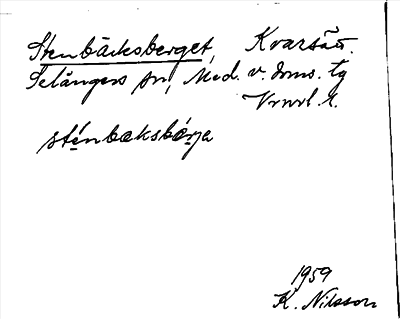 Stenbäcksberget, Kvarsås.
Selångers sn, Med. v. doms. tg
Vrml l.
sténbaksbérja
1959
K. Nilsson